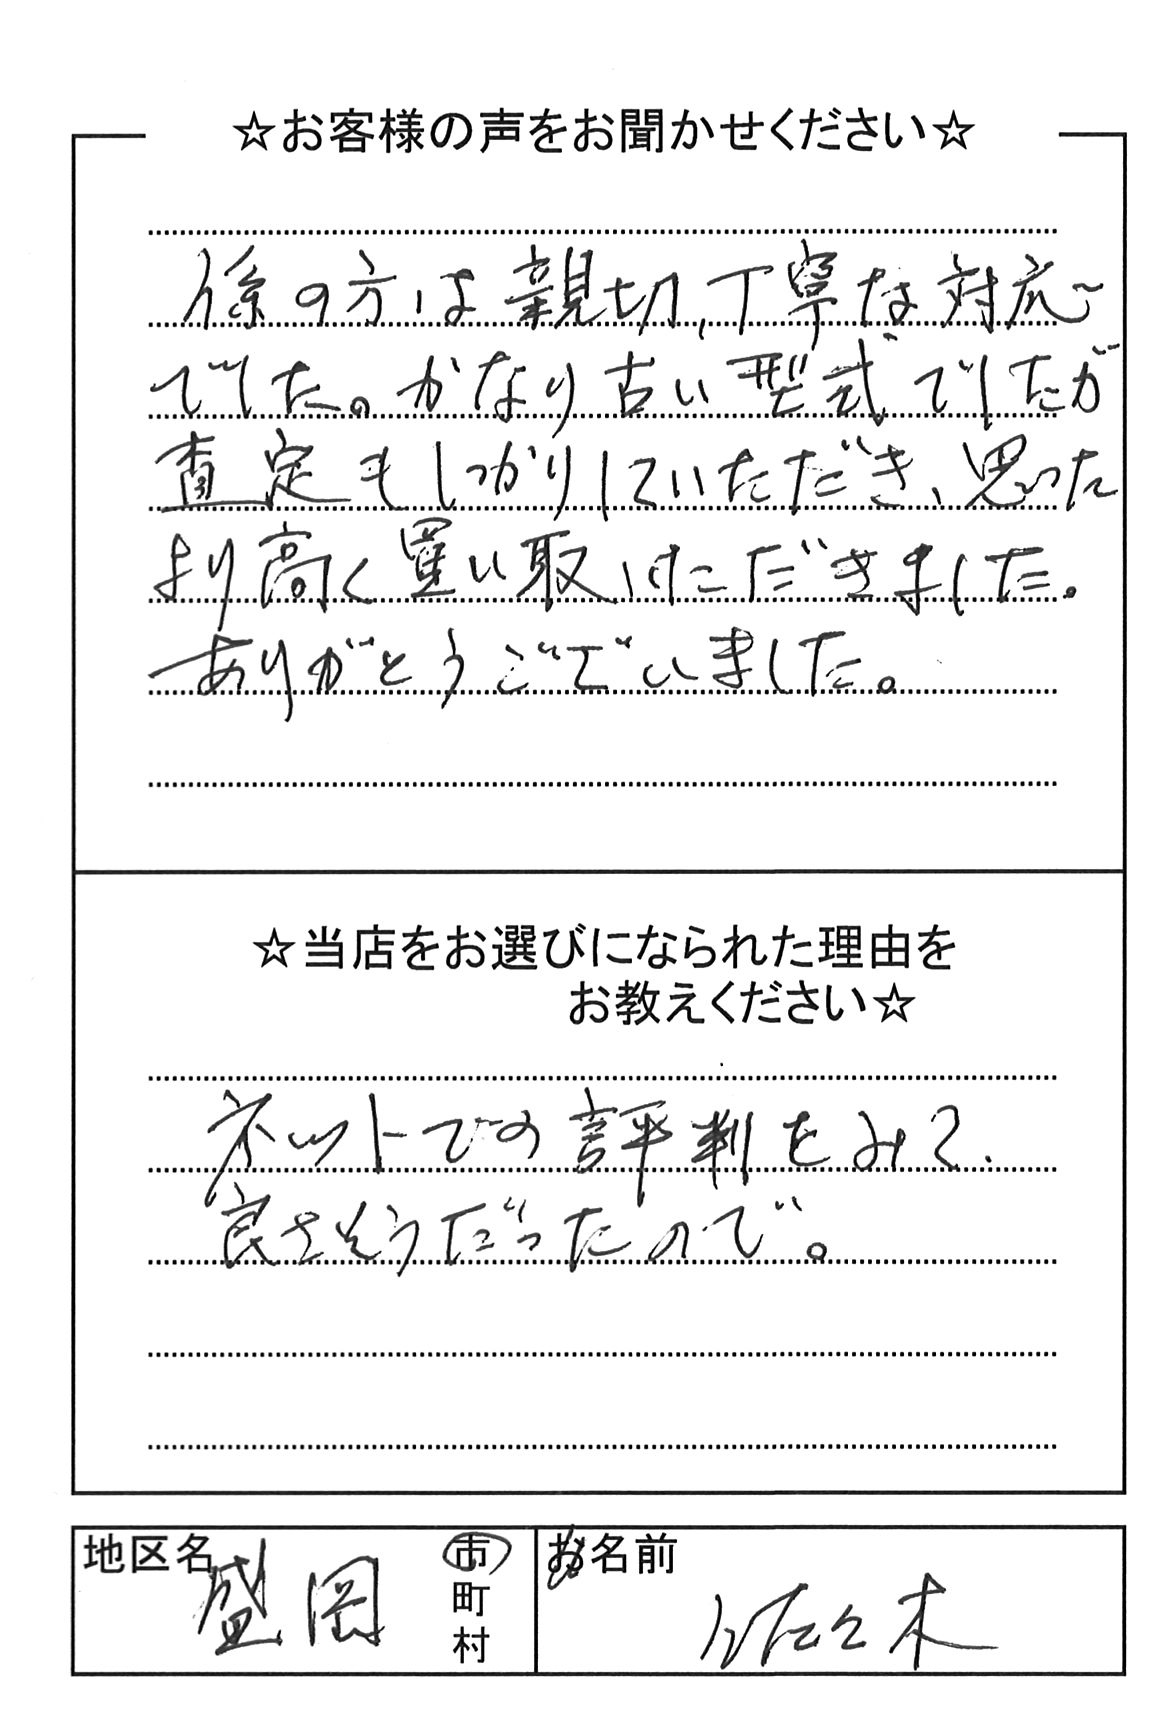 ☆お客様の声をお聞かせください☆
係の方は親切、丁寧な対応
でした。かなり古い型式でしたが
査定もしっかりしていただき、思った
より高く買い取いただきました。
ありがとうございました。
☆当店をお選びになられた理由を
お教えください☆
ネットでの評判をみて、
良さそうだったので。
地区名
盛岡
市
町
村
お名前
佐々木